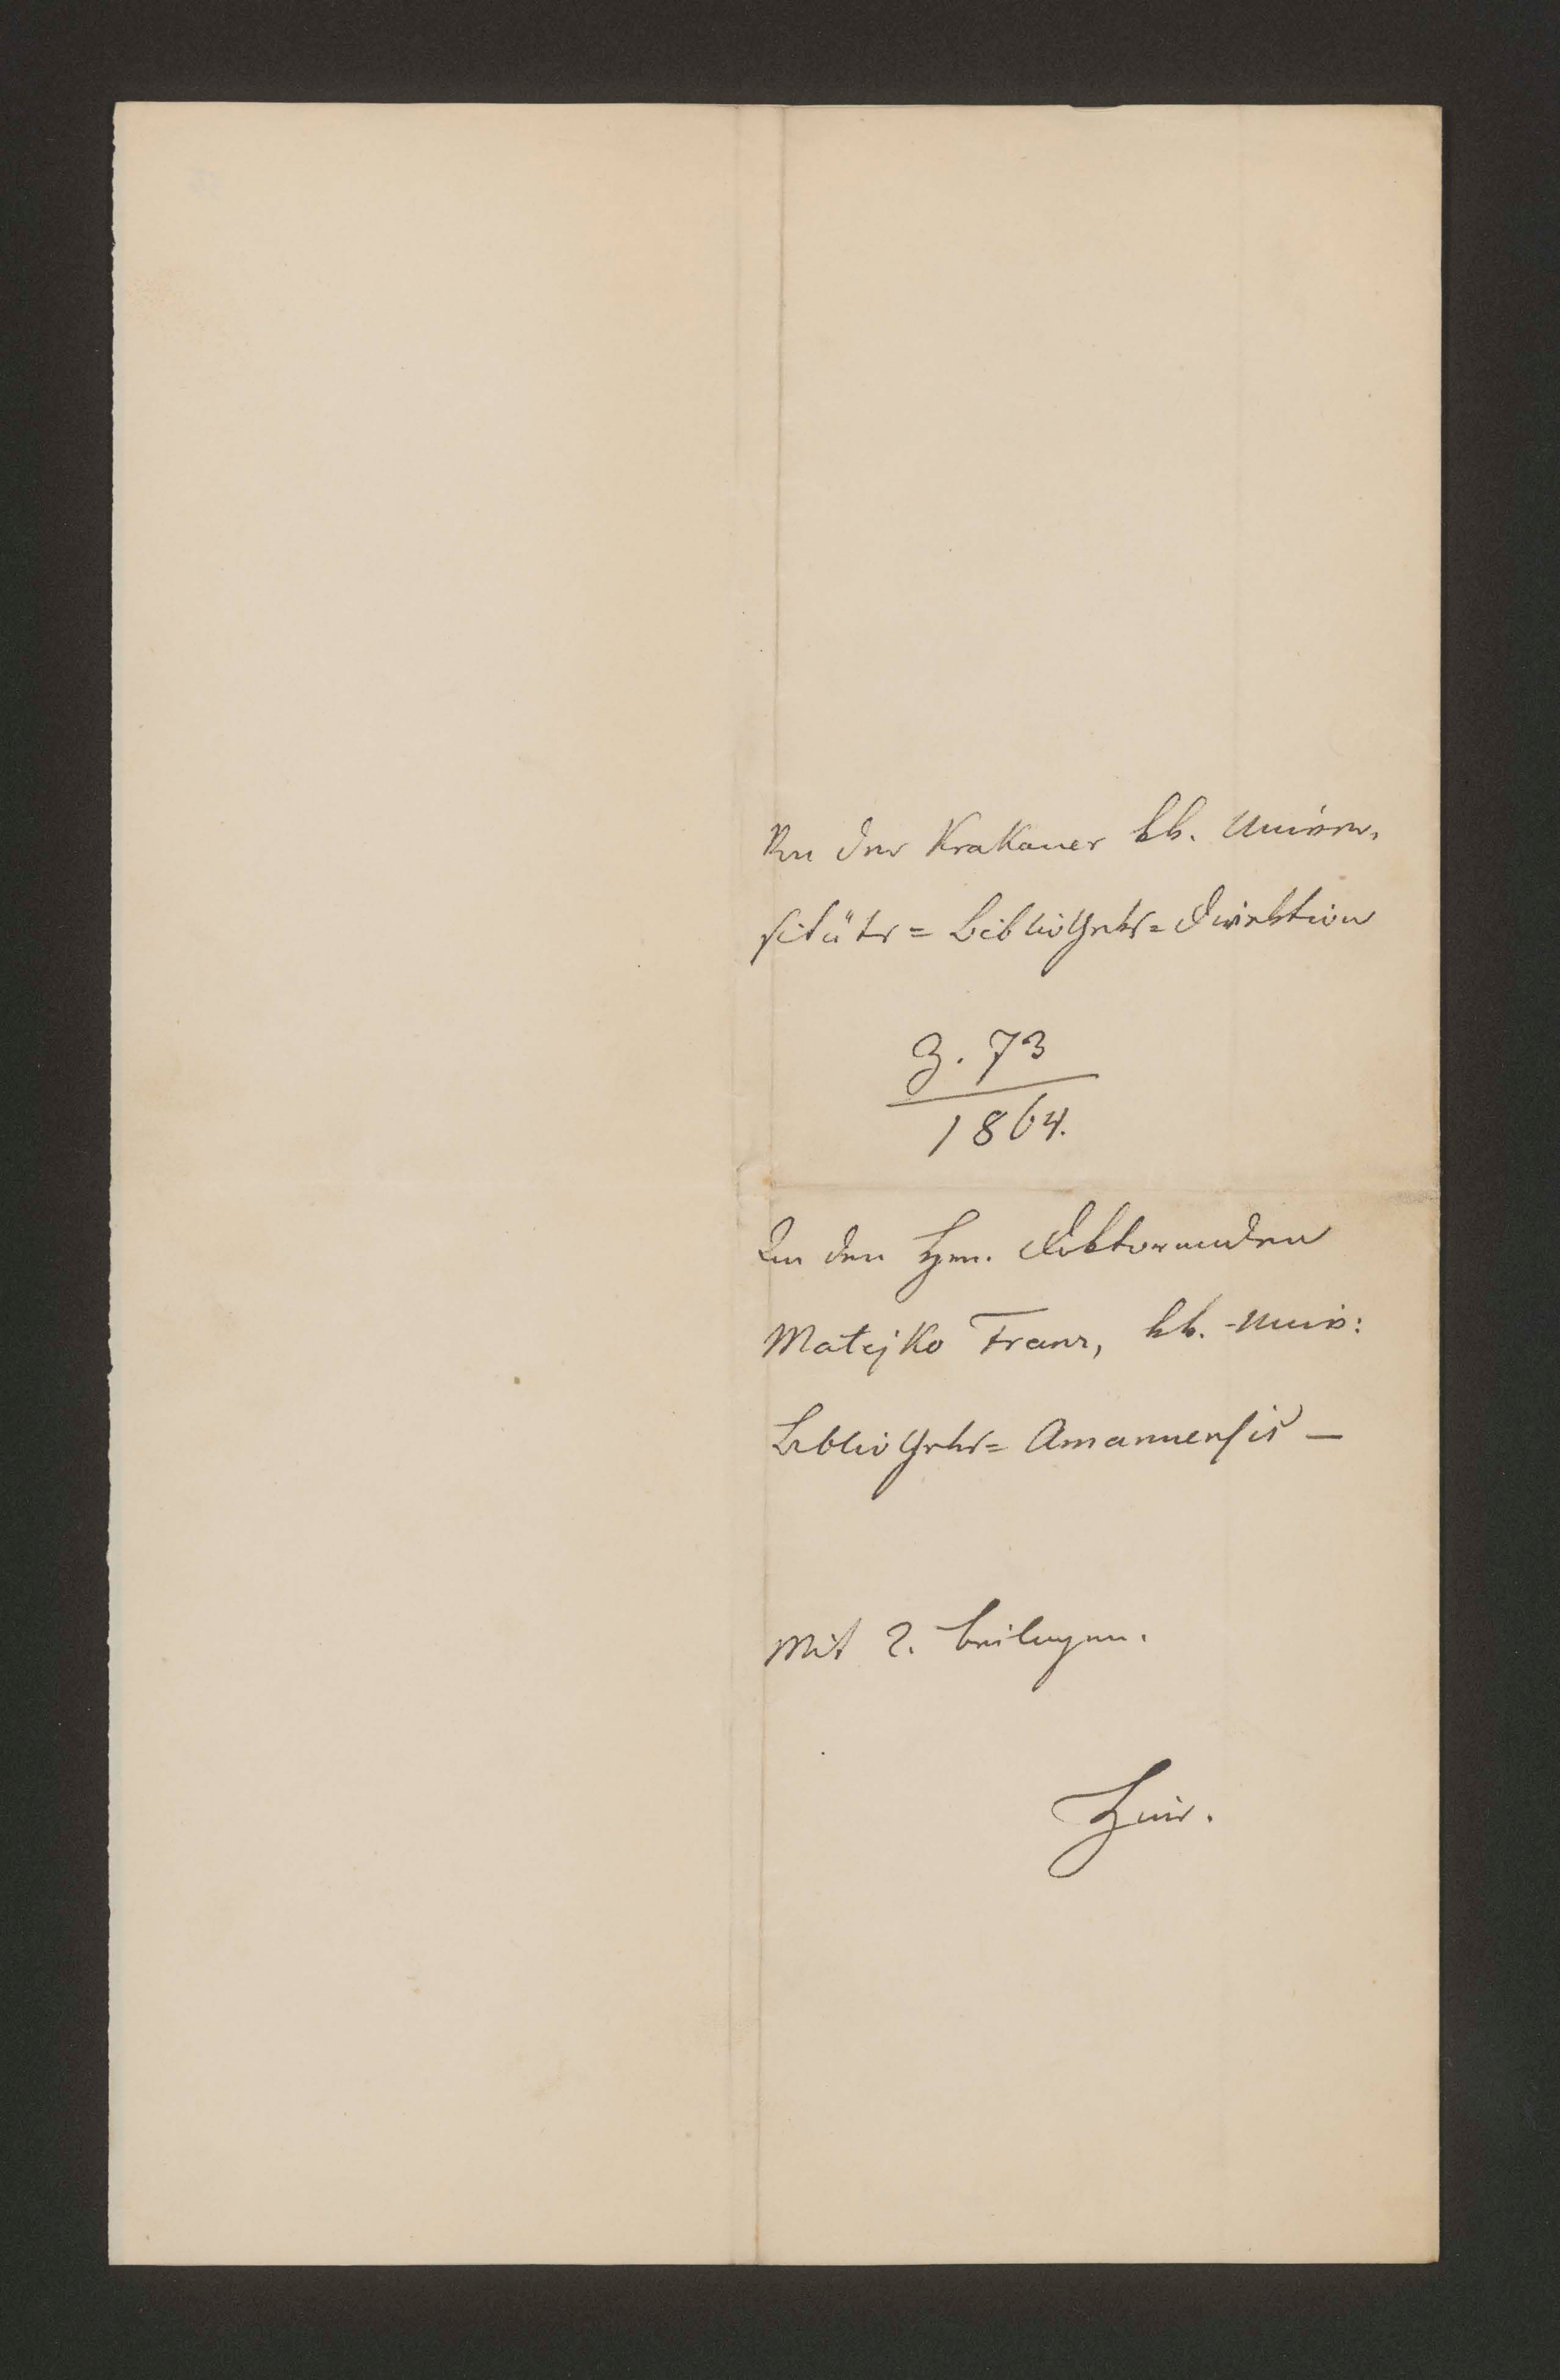 Von der Krakauer kk. Univer-
sitäts=Bibliotheks=Direktion
Z. 73
1864.
An den Hrn. Doktoranden
Matejko Franz, kk. Univ:
Bibliotheks=Amanuensis —
Mit 2. Beilagen.
Hier.